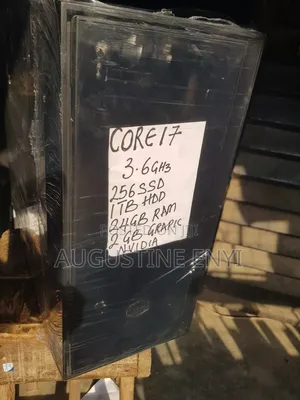 CORE i7
3.6GHz
256SSD
1TB HDD
24GB RAM
2GB GRAPIC
NVIDIA
AUGUSTINE ENYI